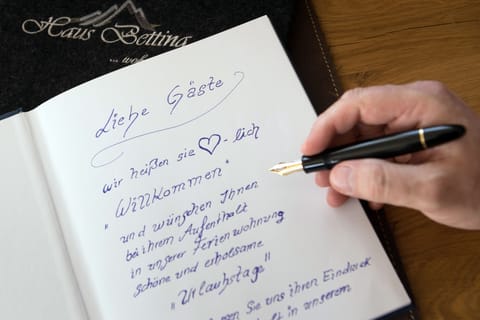 Haus Betting
...
Liebe Gäste
wir heißen sie ♡-lich
"Willkommen"
und wünschen Ihnen
bei ihrem Aufenthalt
in unserer Ferienwohnung
schöne und erholsame
"Urlaubstage"
Sie uns ihren Eindruck
in unserem